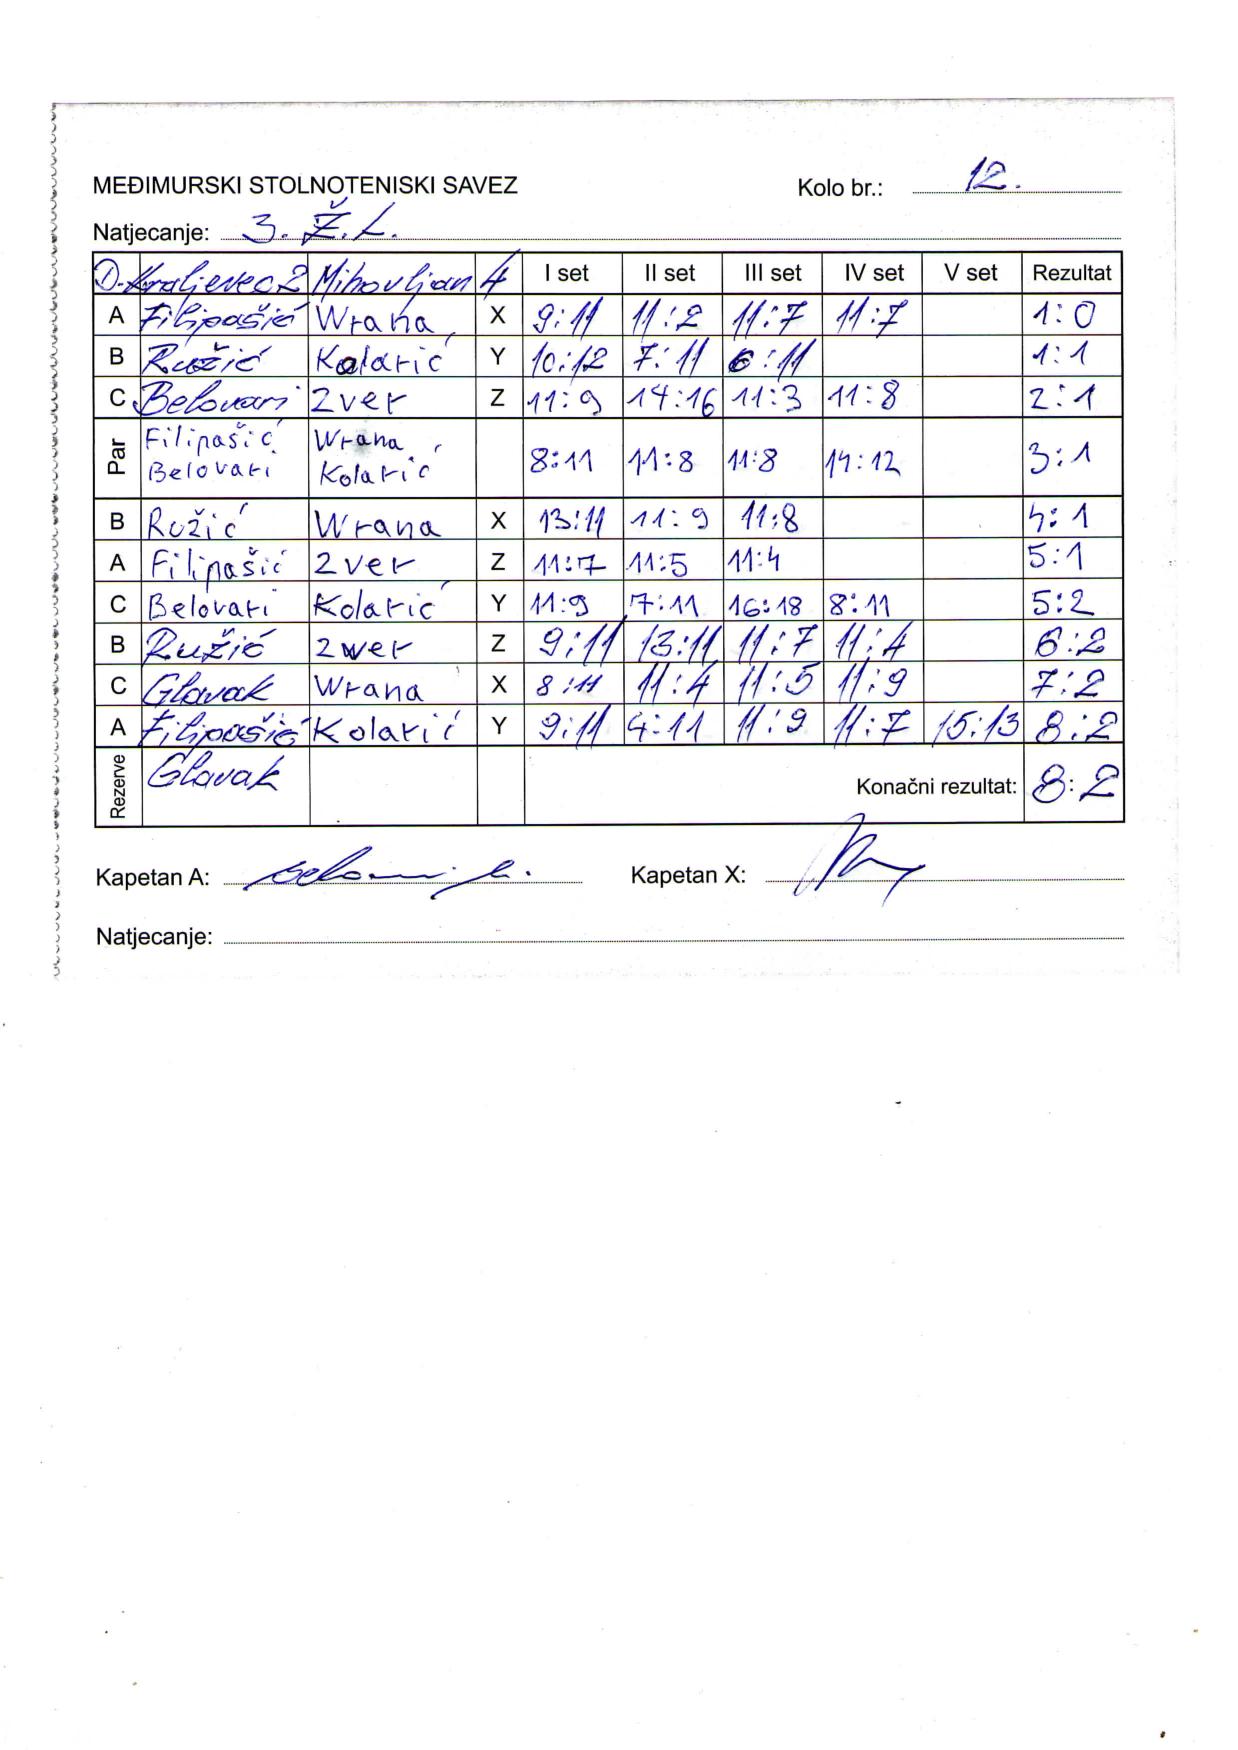 MEĐIMURSKI STOLNOTENISKI SAVEZ Kolo br.: 12.
Natjecanje: 3. Ž.L.
D.Kraljevec 2 Mihovljan 4 I set II set III set IV set V set Rezultat
A Filipašić Wrana X 9:11 11:2 11:7 11:7 1:0
B Ružić Kolarić Y 10:12 7:11 6:11 1:1
C Belovari Zver Z 11:9 14:16 11:3 11:8 2:1
Par Filipašić Wrana 8:11 11:8 11:8 14:12 3:1
Belovari Kolarić
B Ružić Wrana X 13:11 11:9 11:8 4:1
A Filipašić Zver Z 11:7 11:5 11:4 5:1
C Belovari Kolarić Y 11:9 7:11 16:18 8:11 5:2
B Ružić Zwer Z 9:11 13:11 11:7 11:4 6:2
C Glavak Wrana X 8:11 11:4 11:5 11:9 7:2
A Filipašić Kolarić Y 9:11 4:11 11:9 11:7 15:13 8:2
Rezerve Glavak Konačni rezultat: 8:2
Kapetan A: Kapetan X:
Natjecanje: